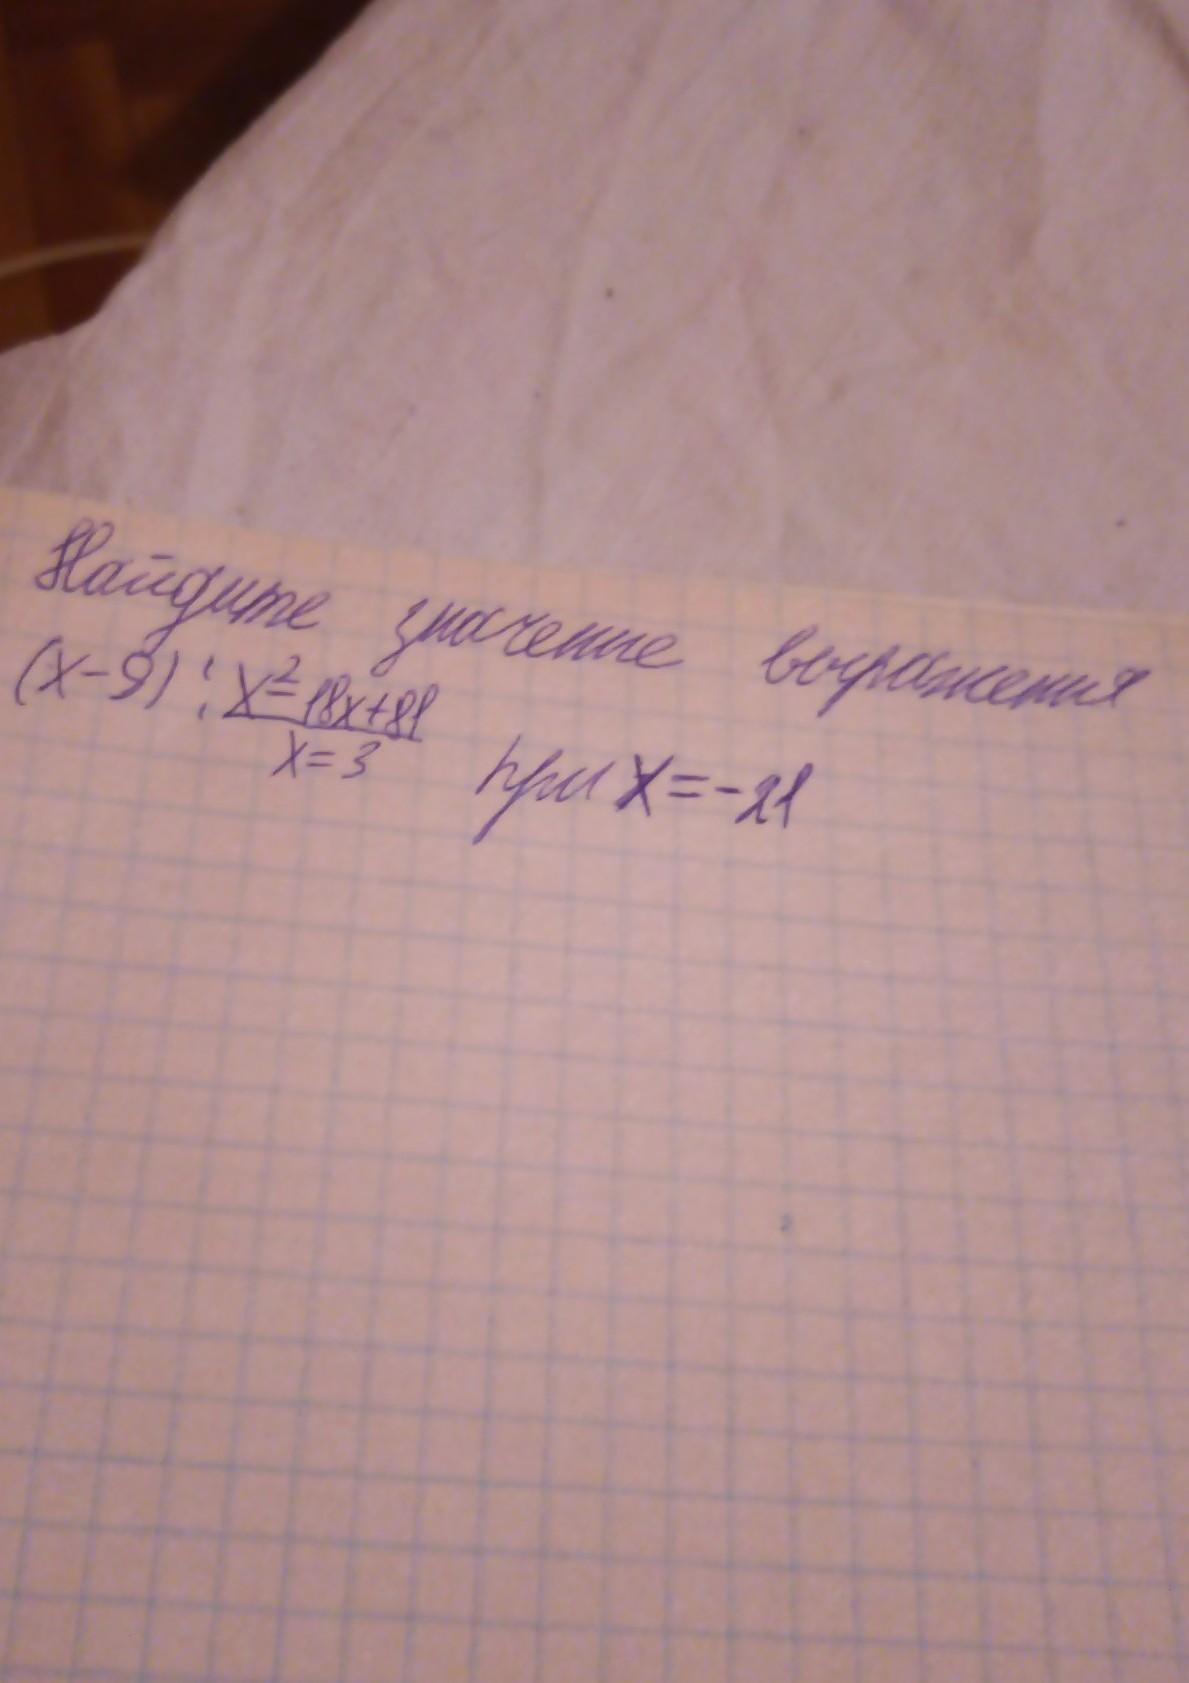 Найдите значение выражения
(x-9) : x²=18x+81
x=3 при x=-21